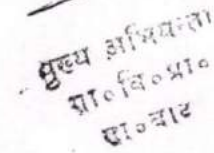 मुख्य अभियन्ता
ग्रा०वि०प्रा०
ग्रा०वाट